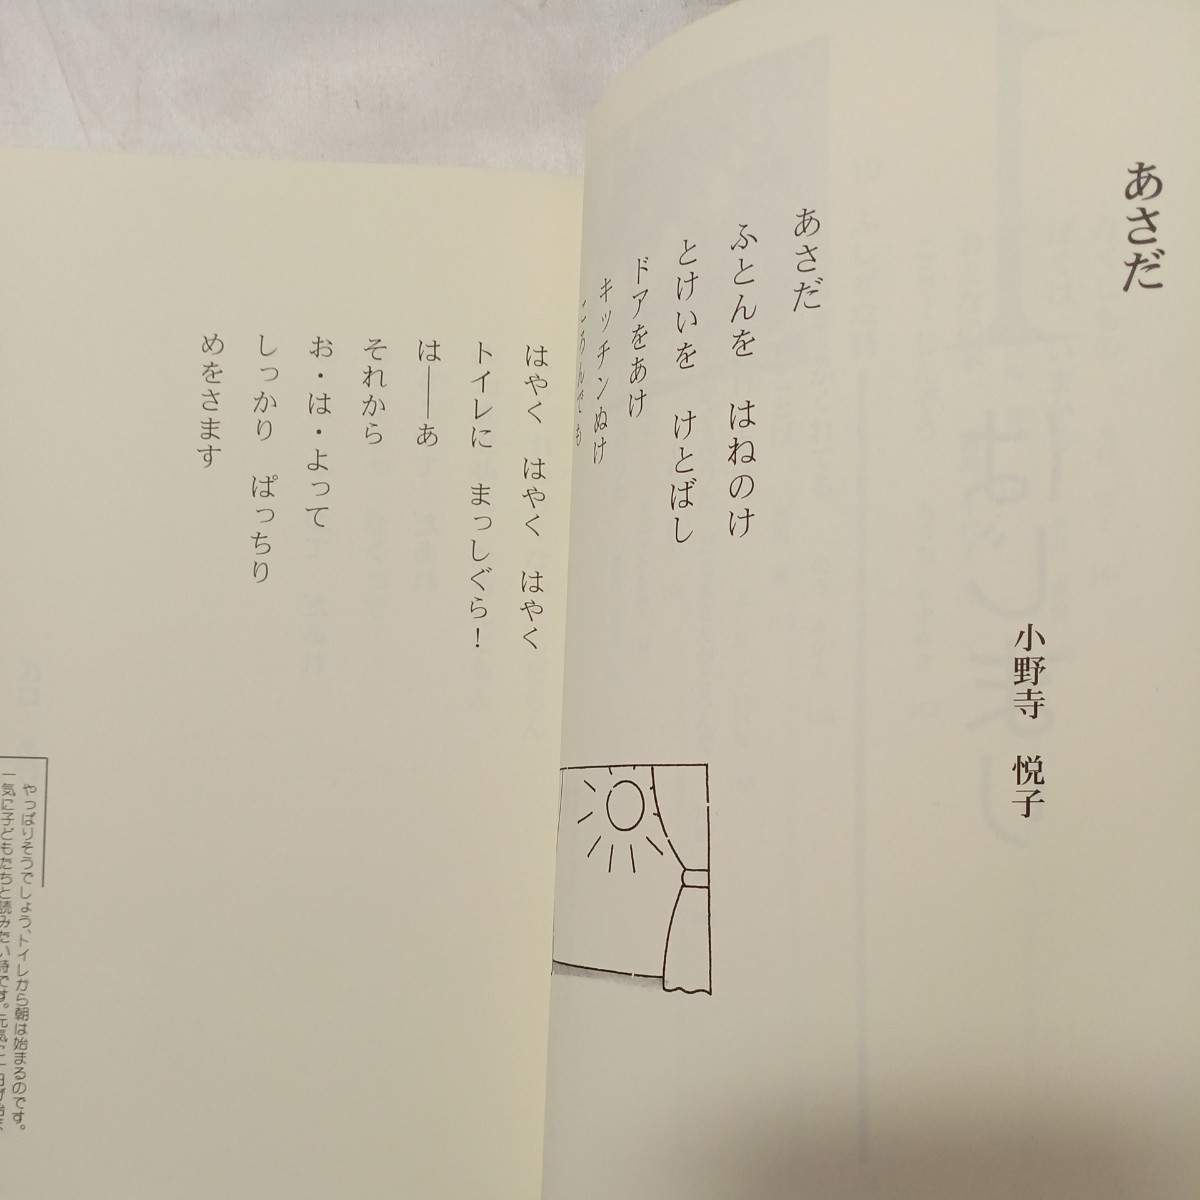 あさだ
小野寺　悦子
あさだ
ふとんを　はねのけ
とけいを　けとばし
ドアをあけ
キッチンぬけ
ころんでも
はやく　はやく　はやく
トイレに　まっしぐら！
は――あ
それから
お・は・よって
しっかり　ぱっちり
めをさます
やっぱりそうでしょう、トイレから朝は始まるのです。
一気に子どもたちと読みたい詩です。元気に一日が始ま